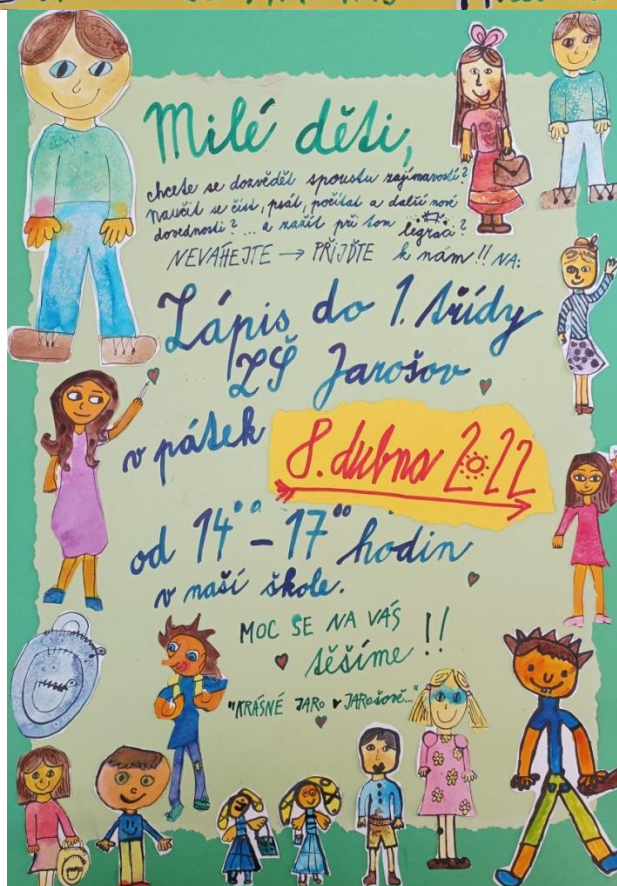 Milé děti,
chcete se dozvědět spoustu zajímavostí?
Naučit se číst, psát, počítat a další nové
dovednosti? ... a zažít při tom legraci?
NEVÁHEJTE → PŘIJĎTE k nám!! NA:
Zápis do 1. třídy
ZŠ Jarošov
v pátek 8. dubna 2022
od 14°° - 17°° hodin
v naší škole.
MOC SE NA VÁS
těšíme!!
"KRÁSNÉ JARO v JAROŠOVĚ..."